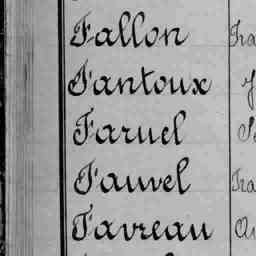 Fallon
Fantoux
Faruel
Fauvel
Favreau